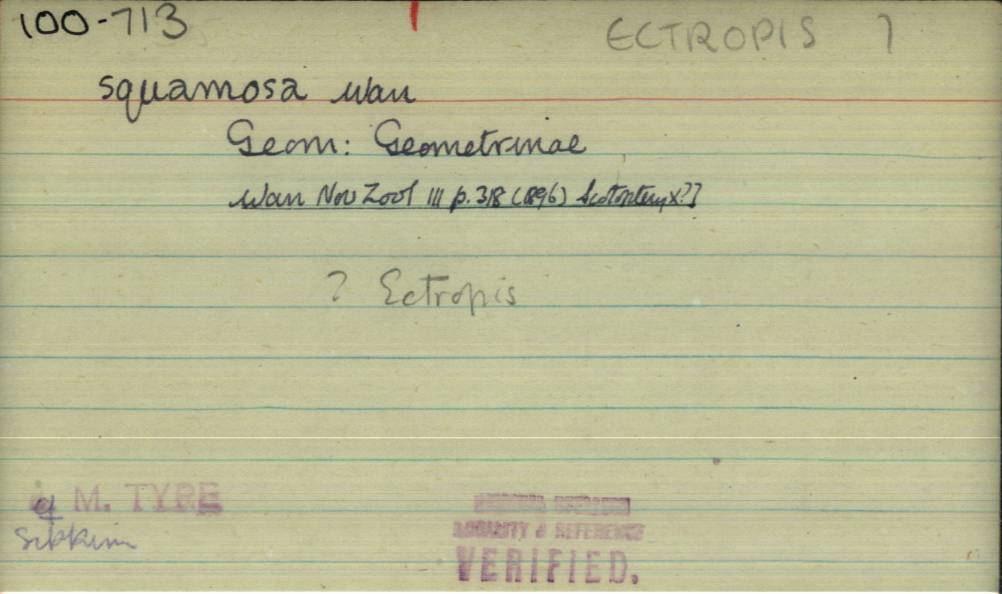 100-713
ECTROPIS ?
squamosa Warr
Geom: Geometrinae
Warr Nov Zool III p. 318 (1896) Scotopteryx?]
? Ectropis
M. TYPE
Sikkim
LOCALITY & REFERENCE
VERIFIED.